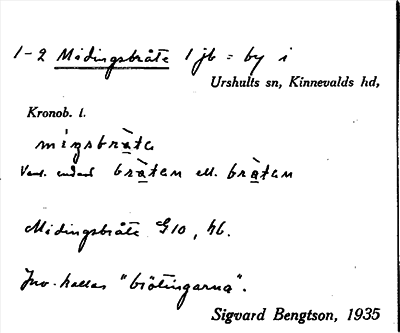 1-2 Midingsbråte 1 jb = by i
Urshults sn, Kinnevalds hd,
Kronob. l.
mɩŋsbràta
Vard. endast bràtan ell. bràtan
Midingsbråte G10, hb.
Inv. kallas "brötingarna".
Sigvard Bengtson, 1935